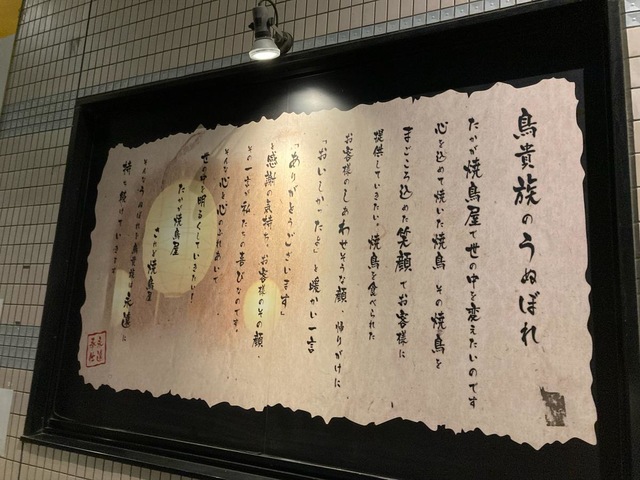 鳥貴族のうぬぼれ
たかが焼鳥屋で世の中を変えたいのです
心を込めて焼いた焼鳥 その焼鳥を
まごころ込めた笑顔でお客様に
提供していきたい。焼鳥を食べられた
お客様のしあわせそうな顔、帰りがけに、
「おいしかったよ」と暖かい一言
「ありがとうございます」
と感謝の気持ち、お客様のその顔、
その一言が私たちの喜びなのです。
そんな心と心のふれあいで
世の中を明るくしていきたい!
たかが焼鳥屋
されど焼鳥屋
そんなうぬぼれを鳥貴族は永遠に
持ち続けていきます。